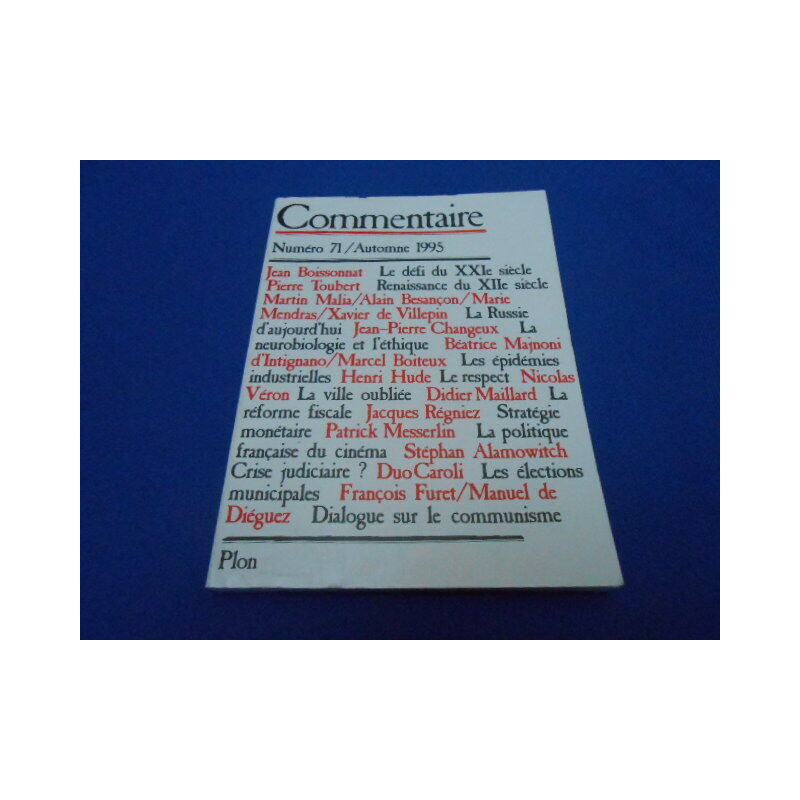 Commentaire
Numéro 71/Automne 1995
Jean Boissonnat Le défi du XXIe siècle
Pierre Toubert Renaissance du XIIe siècle
Martin Malia/Alain Besançon/Marie
Mendras/Xavier de Villepin La Russie
d'aujourd'hui Jean-Pierre Changeux La
neurobiologie et l'éthique Béatrice Majnoni
d'Intignano/Marcel Boiteux Les épidémies
industrielles Henri Hude Le respect Nicolas
Véron La ville oubliée Didier Maillard La
réforme fiscale Jacques Régniez Stratégie
monétaire Patrick Messerlin La politique
française du cinéma Stéphan Alamowitch
Crise judiciaire ? Duo Caroli Les élections
municipales François Furet/Manuel de
Diéguez Dialogue sur le communisme
Plon